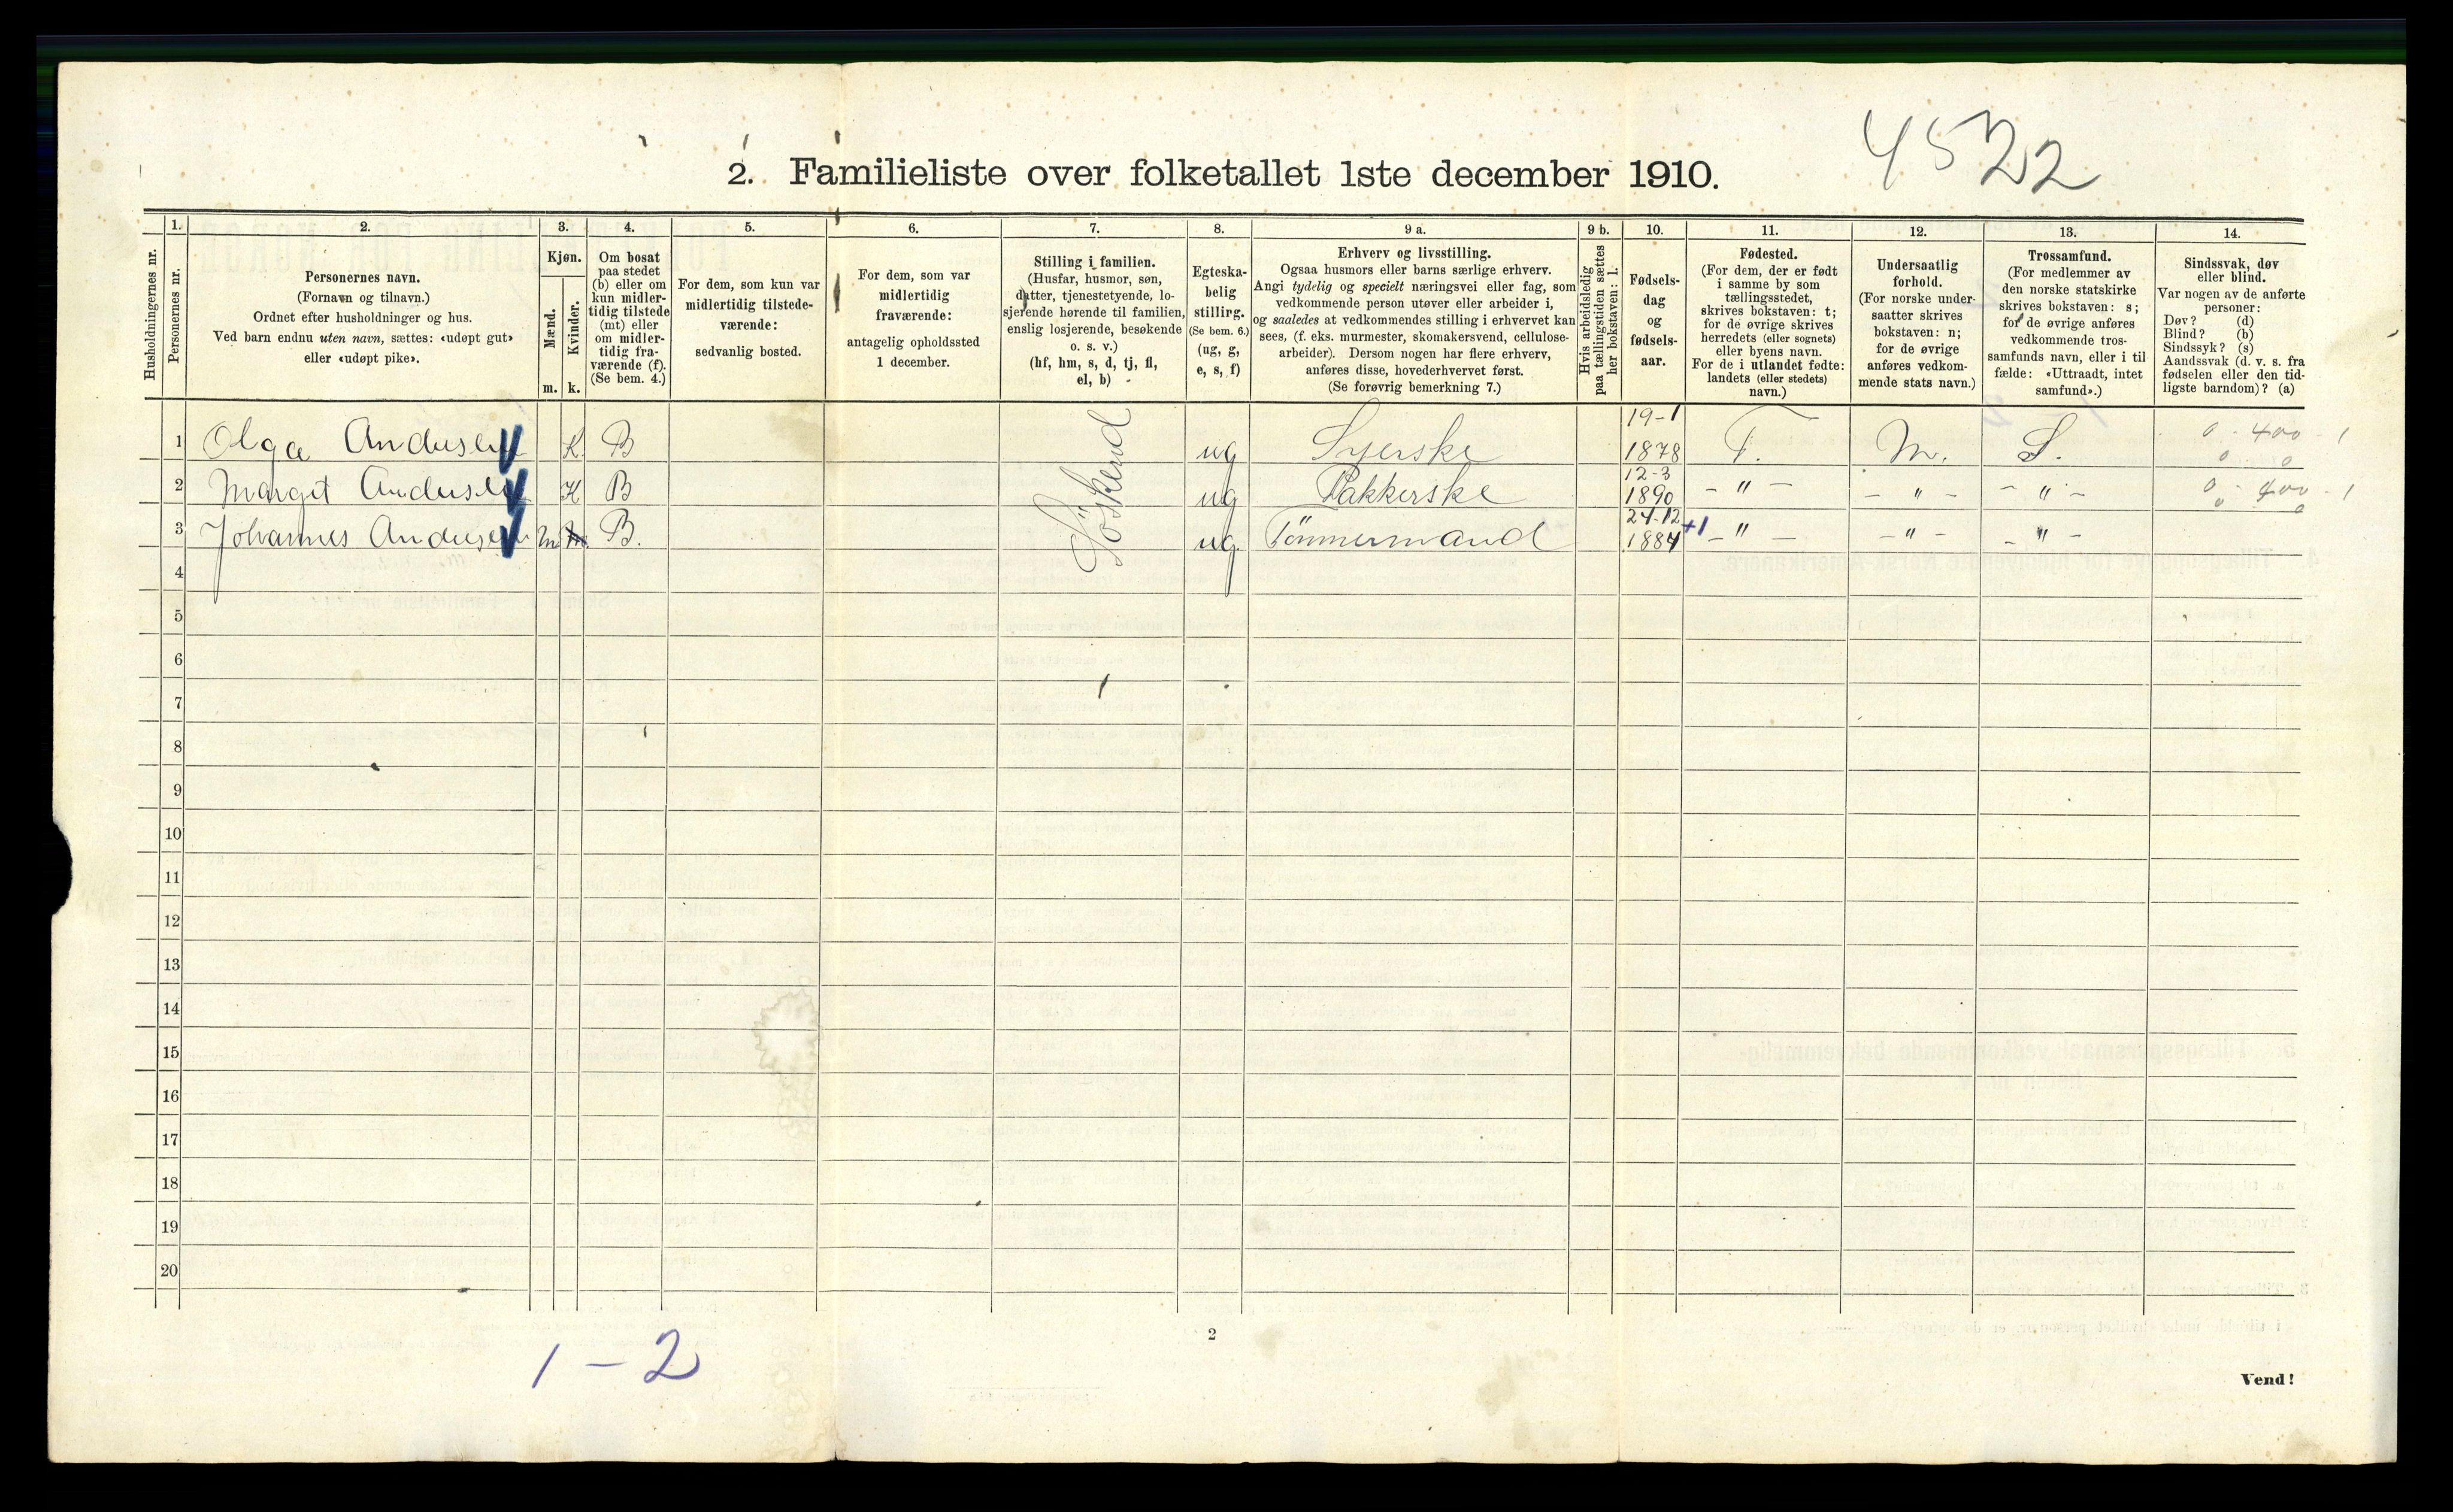 4522
2. Familieliste over folketallet 1ste december 1910.
1. 2. 3. 4. 5. 6. 7. 8. 9 a. 9 b. 10. 11. 12. 13. 14.
Husholdningernes nr.
Personernes nr.
Personernes navn.
(Fornavn og tilnavn.)
Ordnet efter husholdninger og hus.
Ved barn endnu uten navn, sættes: «udøpt gut»
eller «udøpt pike».
Kjøn.
Mænd.
m.
Kvinder.
k.
Om bosat
paa stedet
(b) eller om
kun midler-
tidig tilstede
(mt) eller
om midler-
tidig fra-
værende (f).
(Se bem. 4.)
For dem, som kun var
midlertidig tilstede-
værende:
sedvanlig bosted.
For dem, som var
midlertidig
fraværende:
antagelig opholdssted
1 december.
Stilling i familien.
(Husfar, husmor, søn,
datter, tjenestetyende, lo-
sjerende hørende til familien,
enslig losjerende, besøkende
o. s. v.)
(hf, hm, s, d, tj, fl,
el, b)
Egteska-
belig
stilling.
(Se bem. 6.)
(ug, g,
e, s, f)
Erhverv og livsstilling.
Ogsaa husmors eller barns særlige erhverv.
Angi tydelig og specielt næringsvei eller fag, som
vedkommende person utøver eller arbeider i,
og saaledes at vedkommendes stilling i erhvervet kan
sees, (f. eks. murmester, skomakersvend, cellulose-
arbeider). Dersom nogen har flere erhverv,
anføres disse, hovederhvervet først.
(Se forøvrig bemerkning 7.)
Hvis arbeidsledig
paa tællingstiden sættes
her bokstaven: l.
Fødsels-
dag
og
fødsels-
aar.
Fødested.
(For dem, der er født
i samme by som
tællingsstedet,
skrives bokstaven: t;
for de øvrige skrives
herredets (eller sognets)
eller byens navn.
For de i utlandet fødte:
landets (eller stedets)
navn.)
Undersaatlig
forhold.
(For norske under-
saatter skrives
bokstaven: n;
for de øvrige
anføres vedkom-
mende stats navn.)
Trossamfund.
(For medlemmer av
den norske statskirke
skrives bokstaven: s;
for de øvrige anføres
vedkommende tros-
samfunds navn, eller i til
fælde: «Uttraadt, intet
samfund».)
Sindssvak, døv
eller blind.
Var nogen av de anførte
personer:
Døv? (d)
Blind? (b)
Sindssyk? (s)
Aandssvak (d. v. s. fra
fødselen eller den tid-
ligste barndom)? (a)
1 Olga Andersen K B Söskend ug Syerske 19-1 1878 T. N. S. 0 - 400 - 1
0 0
2 Margit Andersen K B ug Pakkerske 12-3 1890 - " - - " - - " - 0 - 400 - 1
0 0
3 Johannes Andersen m B. ug. Tömmermand 24-12 1884 +1 - " - - " - - " -
4
5
6
7
8
9
10
11
12
13
14
15
16
17
18
19
20
1 - 2
2
Vend!